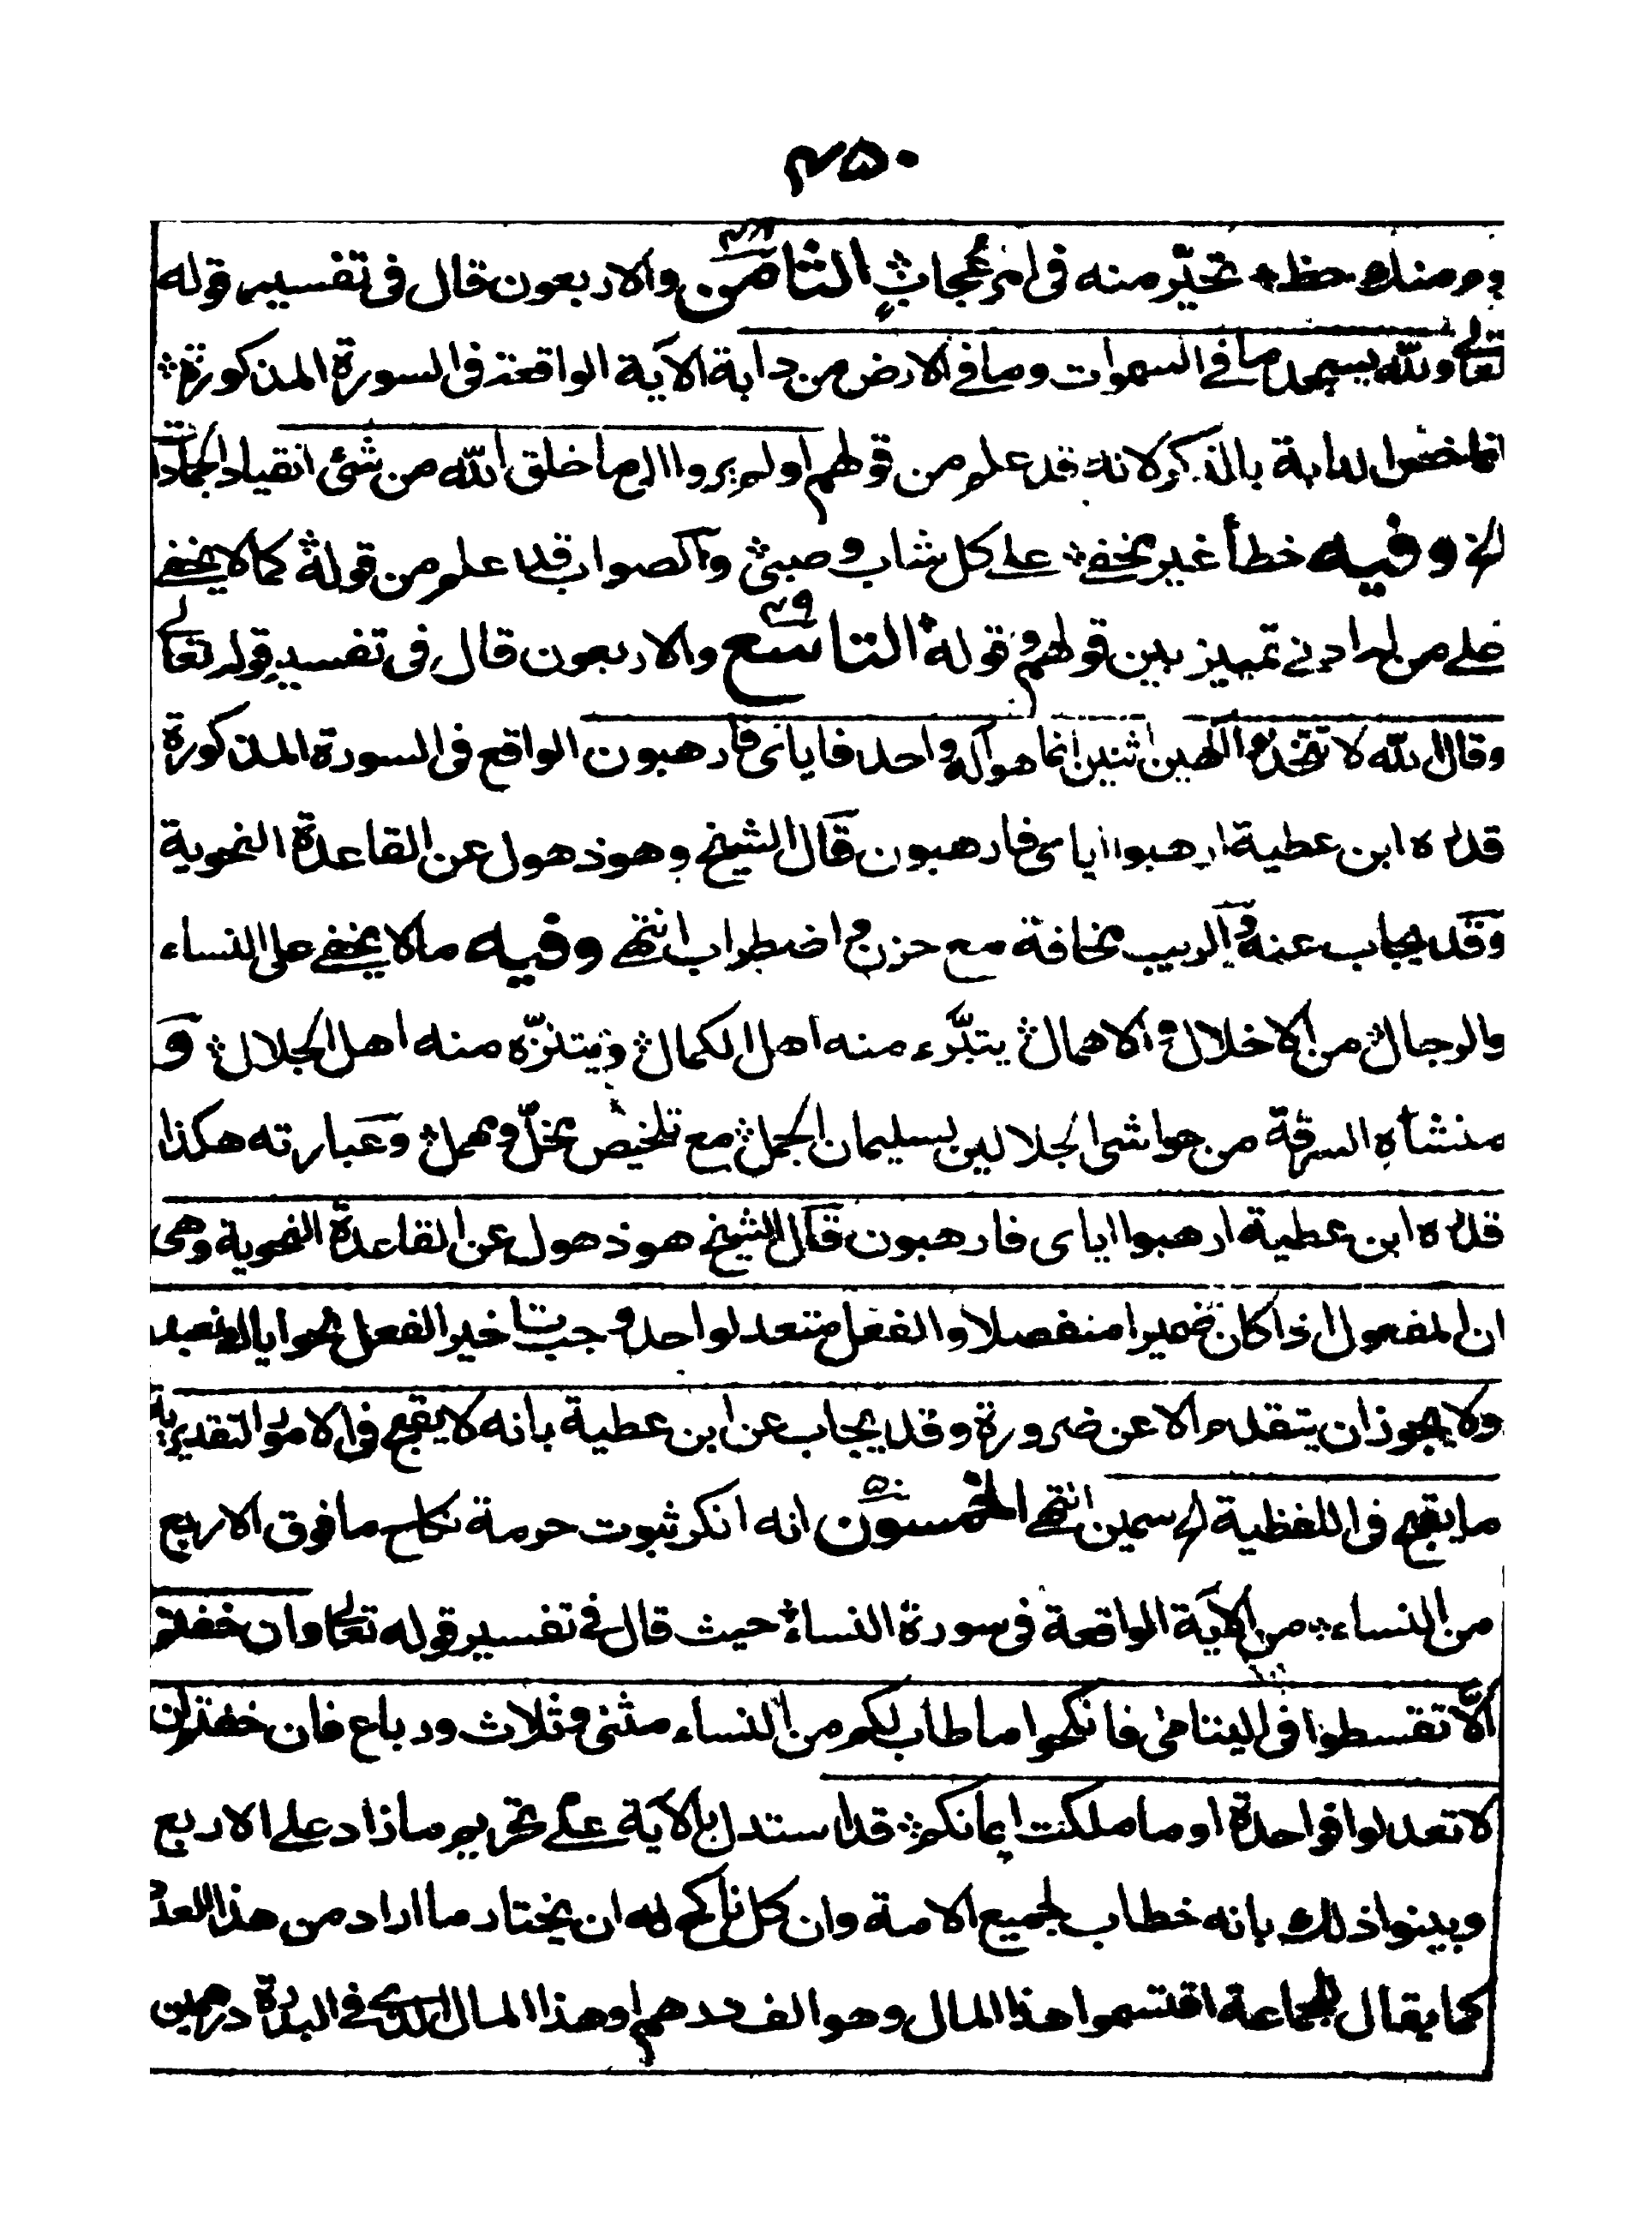 ۴۵۰
منك حظ تحيّر منه فى امر عُجاب الثامن ۴۸ والاربعون قال فى تفسير قوله
تعالى ولله يسجد ما فى السموات وما فى الارض من دابة الآية الواقعة فى السورة المذكورة
انما خص الدابة بالذكر لانه قد علم من قولهم اولم يروا الى ما خلق الله من شئ انقياد الجمادات
الخ وفيه خطأ غير مخفے على كل شاب وصبى والصواب قد علم من قوله كما لا يخفے
على من له ادنى تمييز بين قولهم وقوله التاسع ۴۹ والاربعون قال فى تفسير قوله تعالى
وقال الله لا تتخذوا الهين اثنين انما هو آله واحد فاياى فارهبون الواقع فى السورة المذكورة
قدره ابن عطية ارهبوا اياى فارهبون قال الشيخ وهو ذهول عن القاعدة النحوية
وقد يجاب عنه والرهب مخافة مع حزن واضطراب انتهى وفيه ما لا يخفے على النساء
والرجال من الاخلال والاهمال يتبرّء منه اهل الكمال ويتنزّه منه اهل الجلال و
منشأه السرقة من حواشى الجلالين لسليمان الجمل مع تلخيص مخلّ ومهمل وعبارته هكذا
قدره ابن عطية ارهبوا اياى فارهبون قال الشيخ هو ذهول عن القاعدة النحوية وهى
ان المفعول اذا كان ضميرا منفصلا والفعل متعد لواحد وجب تاخير الفعل نحو اياك نعبد
ولا يجوز ان يتقدم الا عن ضرورة وقد يجاب عن ابن عطية بانه لا يقبح فى الامور التقديرية
ما يقبح فى اللفظية اه سمين انتهى الخمسون ۵۰ انه انكر ثبوت حرمة نكاح ما فوق الاربع
من النساء من الآية الواقعة فى سورة النساء حيث قال فى تفسير قوله تعالى وان خفتم
الّا تقسطوا فى اليتامى فانكحوا ما طاب لكم من النساء مثنى وثلاث ورباع فان خفتم ان
لا تعدلوا فواحدة او ما ملكت ايمانكم قد استدل بالآية على تحريم ما زاد على الاربع
وبينوا ذلك بانه خطاب لجميع الامة وان كل ناكح له ان يختار ما اراد من هذا العدد
كما يقال للجماعة اقتسموا هذا المال وهو الف درهم او هذا المال الذى فى البدرة درهمين